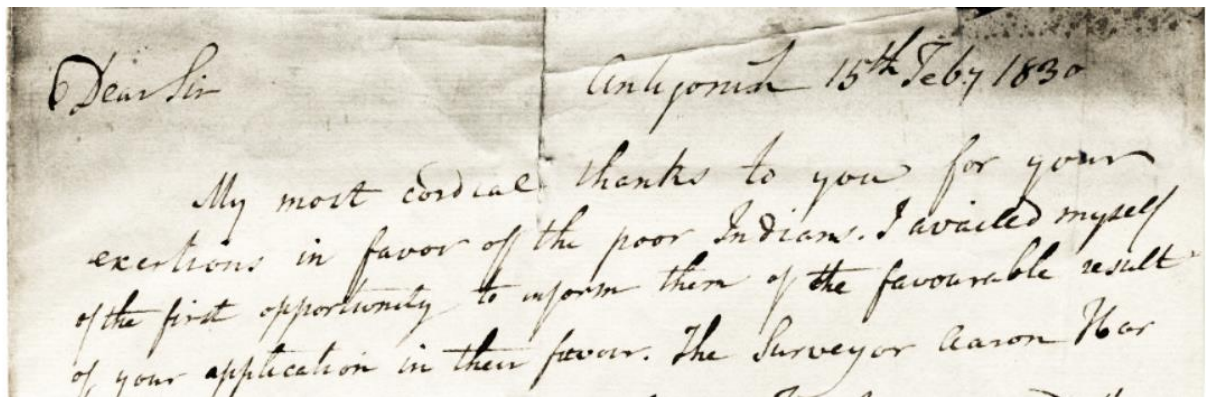 Dear Sir
Antigonish 15th Feby 1830
My most cordial thanks to you for your
exertions in favor of the poor Indians. I availed myself
of the first opportunity to inform them of the favourable result
of your application in their favour. The Surveyor Aaron Har